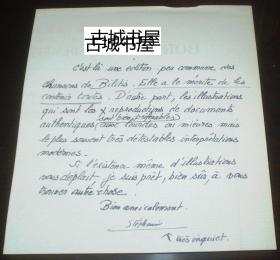 古城书屋
古城书屋
C'est là une édition peu commune, des
Chansons de Bilitis. Elle a le mérite de les
contenir toutes. D'autre part, les illustrations
qui sont les reproductions de documents
sont bien préférables
authentiques ou mièvres mais
le plus souvent très détestables interprétations
modernes.
Si l'existence même d'illustrations
vous déplait je suis prêt, bien sûr, à vous
trouver autre chose.
Bien amicalement
Stéphane
très inquiet.